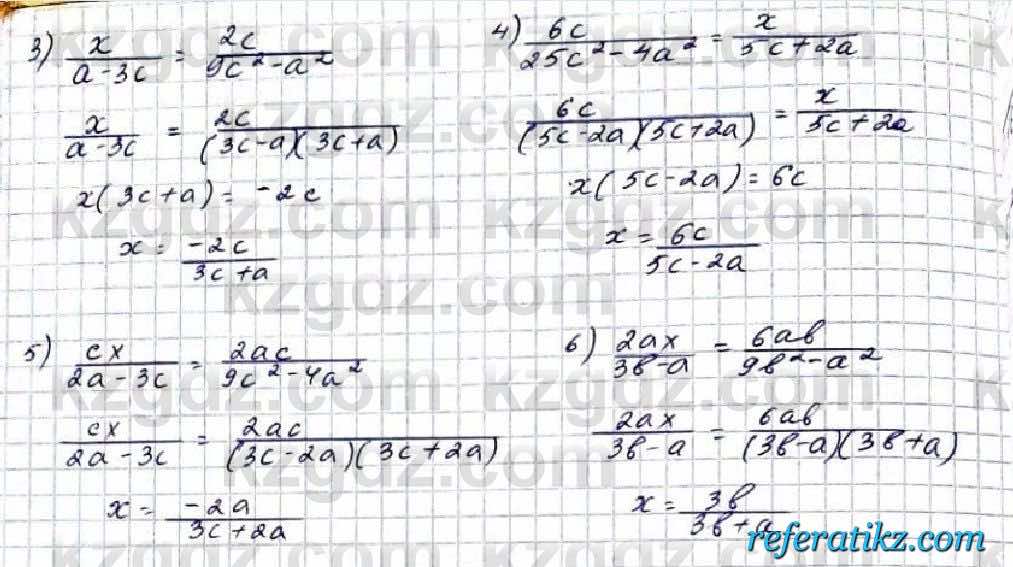 3) x/(a-3c) = 2c/(9c²-a²)
x/(a-3c) = 2c/((3c-a)(3c+a))
x(3c+a) = -2c
x = -2c/(3c+a)
4) 6c/(25c²-4a²) = x/(5c+2a)
6c/((5c-2a)(5c+2a)) = x/(5c+2a)
x(5c-2a) = 6c
x = 6c/(5c-2a)
5) cx/(2a-3c) = 2ac/(9c²-4a²)
cx/(2a-3c) = 2ac/((3c-2a)(3c+2a))
x = -2a/(3c+2a)
6) 2ax/(3b-a) = 6ab/(9b²-a²)
2ax/(3b-a) = 6ab/((3b-a)(3b+a))
x = 3b/(3b+a)
kzgdz.com
referatikz.com